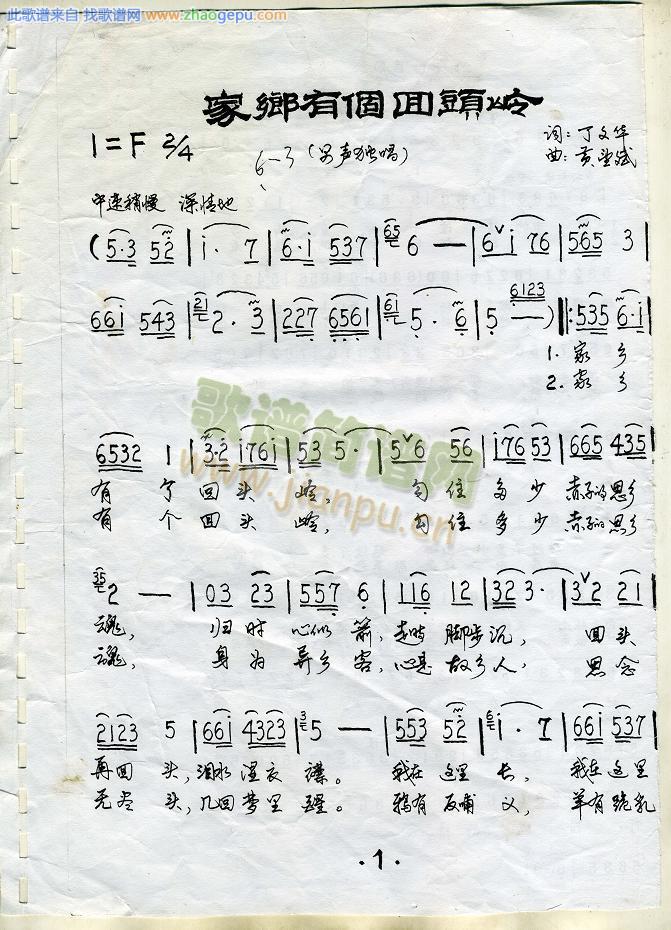 此歌谱来自 找歌谱网 www.zhaogepu.com
家鄉有個回頭岭
1=F 2/4
6-3 (男声独唱)
词: 丁文华
曲: 黄
中速稍慢 深情地
(5·3 52 | i· 7 | 6·i 537 | 65 6 — | 6 i 76 | 5765 3 |
66i 543 | 21 2· 3 | 227 6561 | 61 5· 6 | 5 — 6123 ) ‖: 535 6·i |
1. 家 乡
2. 家 乡
6532 1 | 3·2 i76i | 53 5· | 5 6 56 | i76 53 | 665 435 |
有 个 回 头 岭, 勾 住 多 少 赤子的思乡
有 个 回 头 岭, 勾 住 多 少 赤子的思乡
35 2 — | 03 23 | 557 6 | 116 12 | 32 3· | 3 2 21 |
魂, 归 时 心似 箭, 走时 脚步 沉, 回头
魂, 身 为 异乡 客, 心是 故乡 人, 思念
2123 5 | 66i 4323 | 3 5 — | 553 52 | 6 i· 7 | 66i 537 |
再回 头, 泪水 湿衣 襟。 我在 这里 长, 我在 这里
无尽 头, 几回 梦里 醒。 鸦有 反哺 义, 羊有 跪乳
歌谱简谱网
www.jianpu.cn
·1·